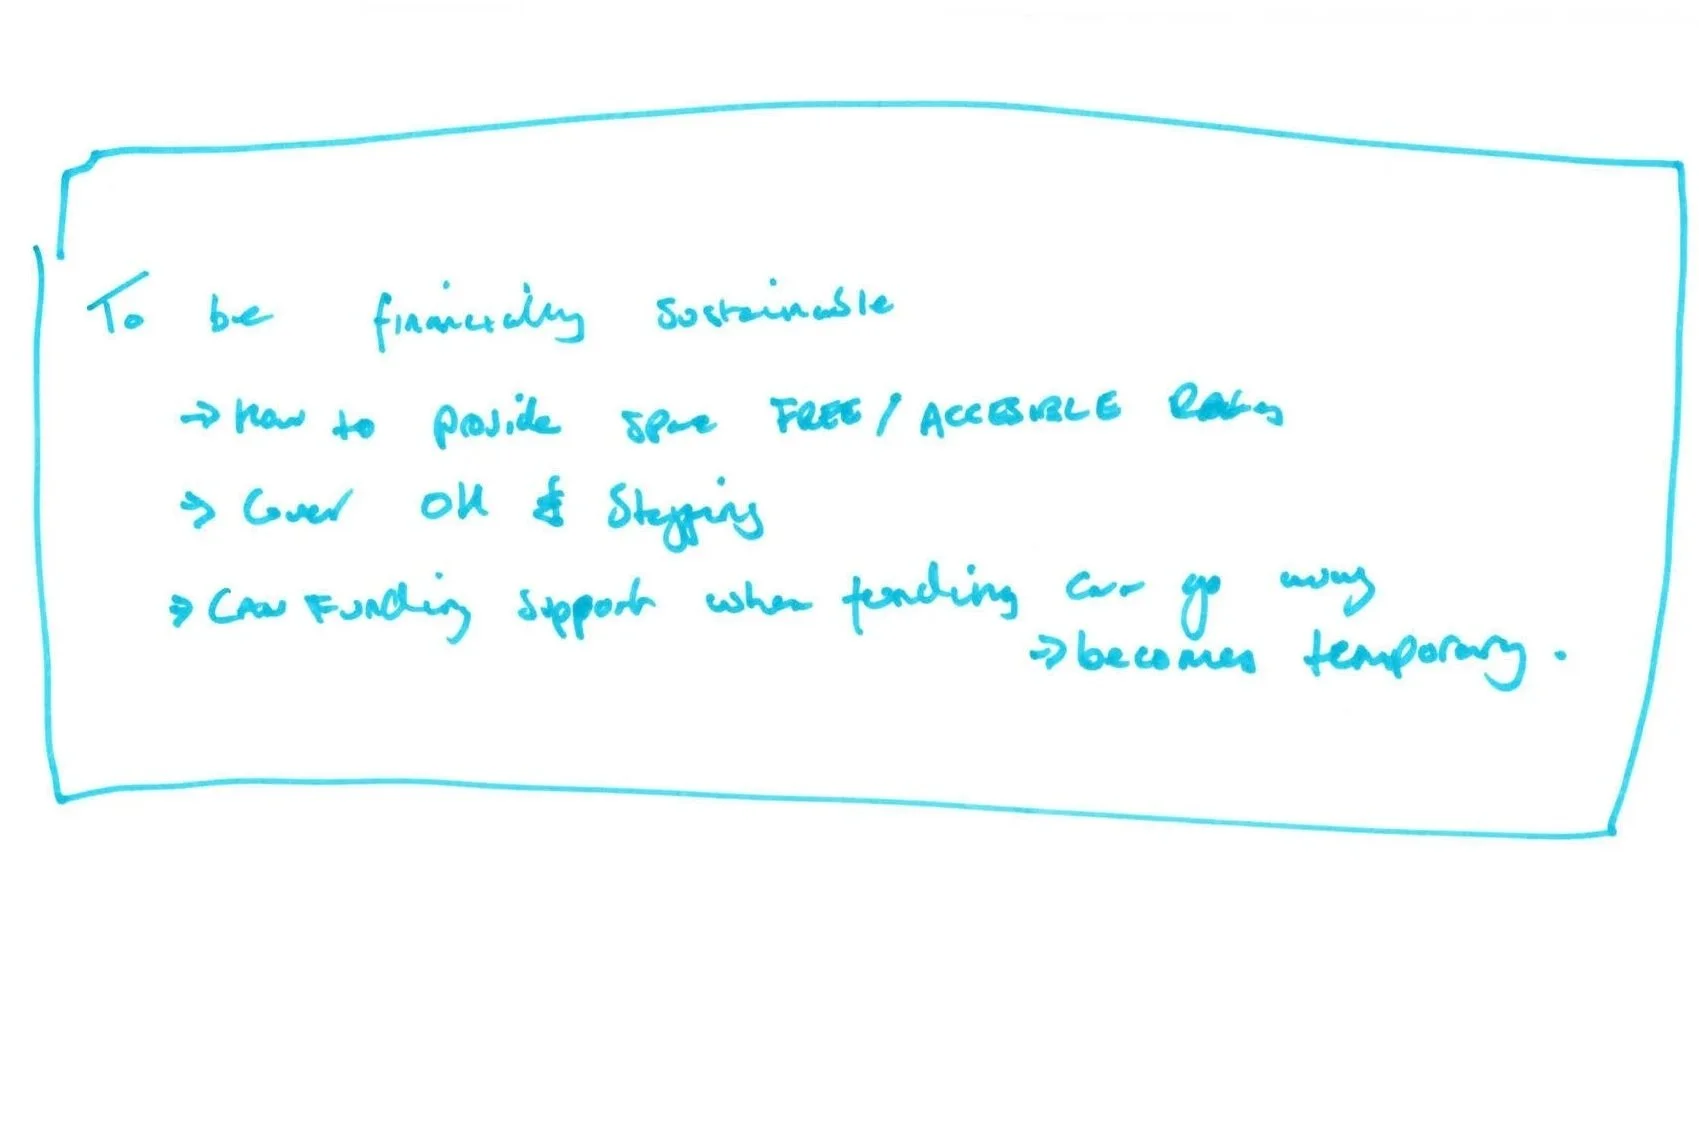 To be financially sustainable
→ How to provide space FREE / ACCESIBLE
→ Cover OH & Staffing
→ Can Funding support when funding can go away
→ becomes temporary.